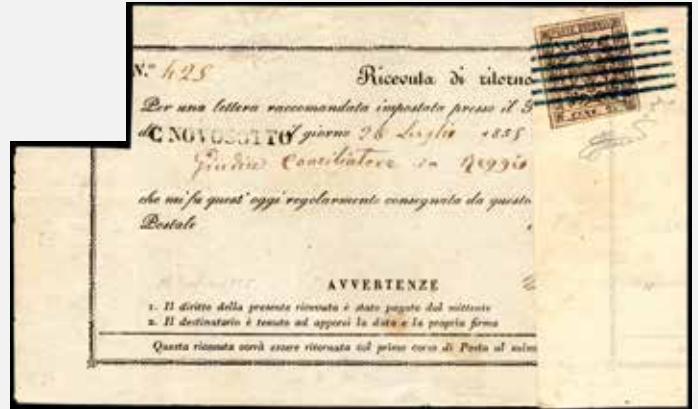 N.º 425
Ricevuta di ritorno
Per una lettera raccomandata impostata presso il
di C NOVOSOTTO il giorno 26 Luglio 1855
Giudice Conciliatore in Reggio
che mi fu quest' oggi regolarmente consegnata da questo
Postale
AVVERTENZE
1. Il diritto della presente ricevuta è stato pagato dal mittente
2. Il destinatario è tenuto ad apporvi la data e la propria firma
Questa ricevuta verrà essere ritornata col primo corso di Posta al